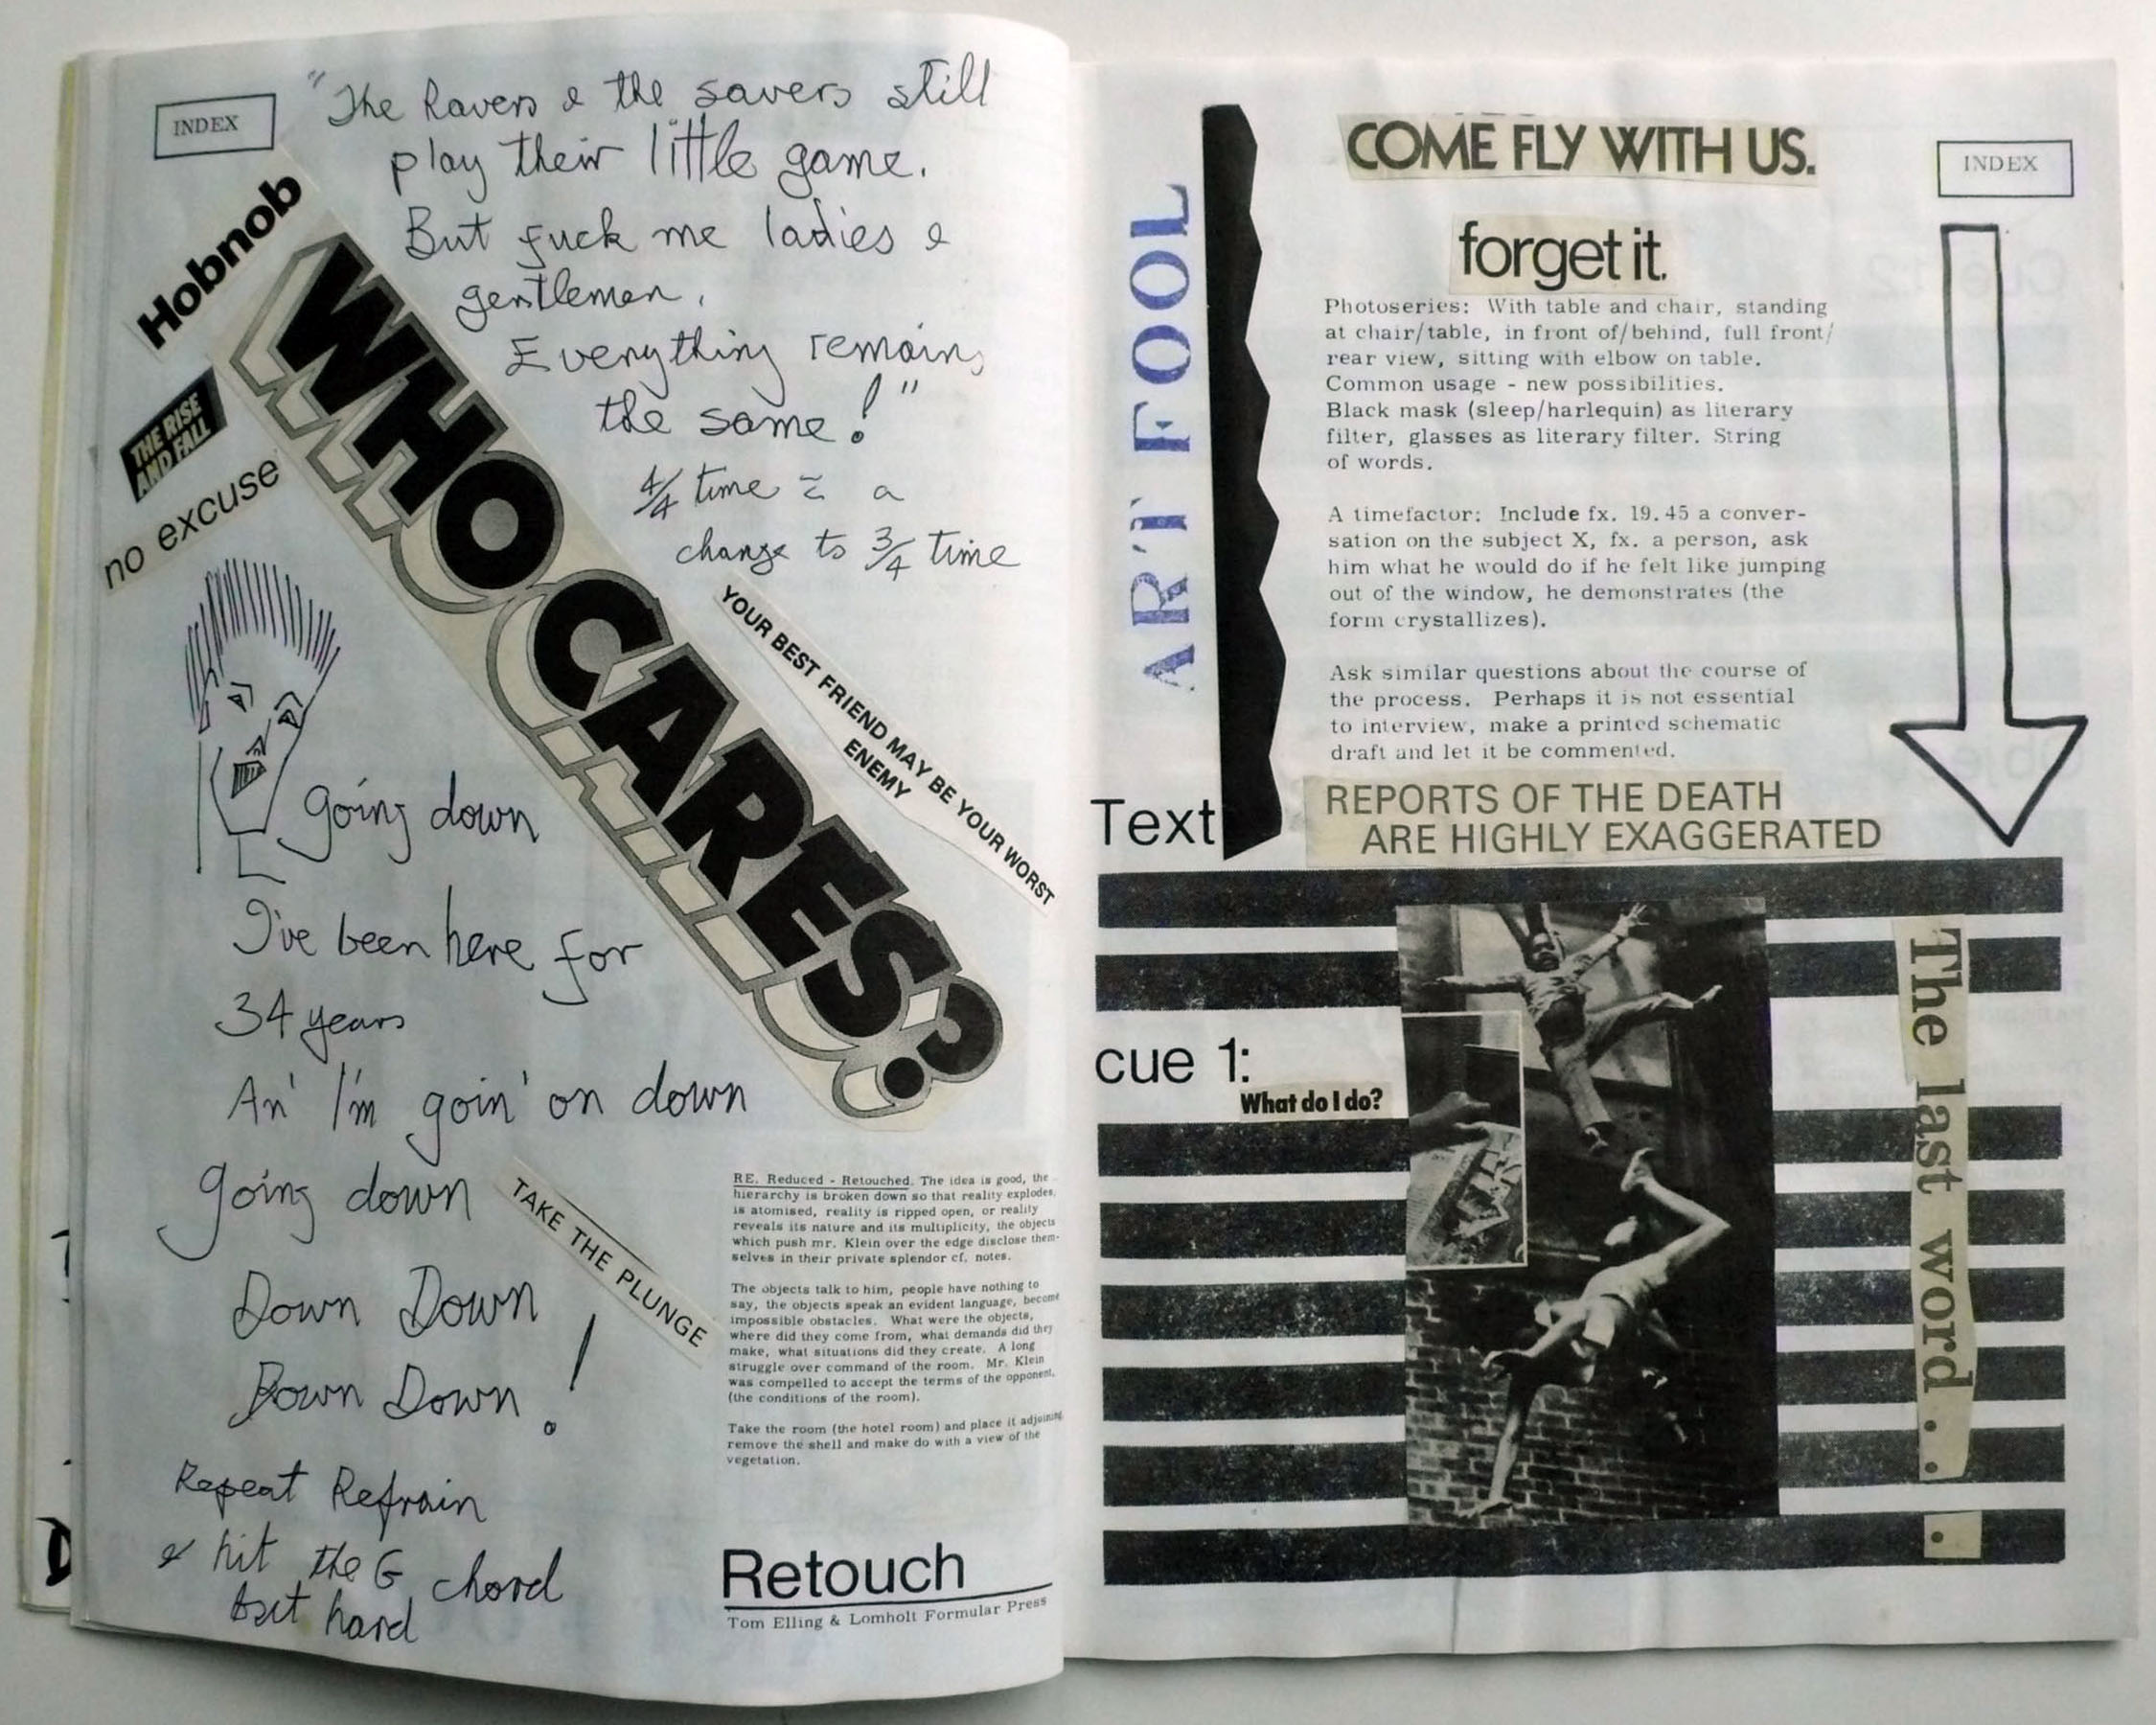 INDEX
"The Ravers & the savers still
play their little game.
But fuck me ladies &
gentlemen,
Everything remains
the same!"
4/4 time ≈ a
change to 3/4 time
Hobnob
THE RISE
AND FALL
no excuse
WHO CARES?
YOUR BEST FRIEND MAY BE YOUR WORST
ENEMY
going down
I've been here for
34 years
An' I'm goin' on down
going down
Down Down
Down Down!
TAKE THE PLUNGE
Repeat Refrain
& hit the G chord
but hard
RE. Reduced - Retouched. The idea is good, the
hierarchy is broken down so that reality explodes,
is atomised, reality is ripped open, or reality
reveals its nature and its multiplicity, the objects
which push mr. Klein over the edge disclose them-
selves in their private splendor cf. notes.
The objects talk to him, people have nothing to
say, the objects speak an evident language, become
impossible obstacles. What were the objects,
where did they come from, what demands did they
make, what situations did they create. A long
struggle over command of the room. Mr. Klein
was compelled to accept the terms of the opponent.
(the conditions of the room).
Take the room (the hotel room) and place it adjoining
remove the shell and make do with a view of the
vegetation.
Retouch
Tom Elling & Lomholt Formular Press
ART FOOL
COME FLY WITH US.
INDEX
forget it.
Photoseries: With table and chair, standing
at chair/table, in front of/behind, full front/
rear view, sitting with elbow on table.
Common usage - new possibilities.
Black mask (sleep/harlequin) as literary
filter, glasses as literary filter. String
of words.
A timefactor: Include fx. 19.45 a conver-
sation on the subject X, fx. a person, ask
him what he would do if he felt like jumping
out of the window, he demonstrates (the
form crystallizes).
Ask similar questions about the course of
the process. Perhaps it is not essential
to interview, make a printed schematic
draft and let it be commented.
Text
REPORTS OF THE DEATH
ARE HIGHLY EXAGGERATED
cue 1:
What do I do?
The last word . . .